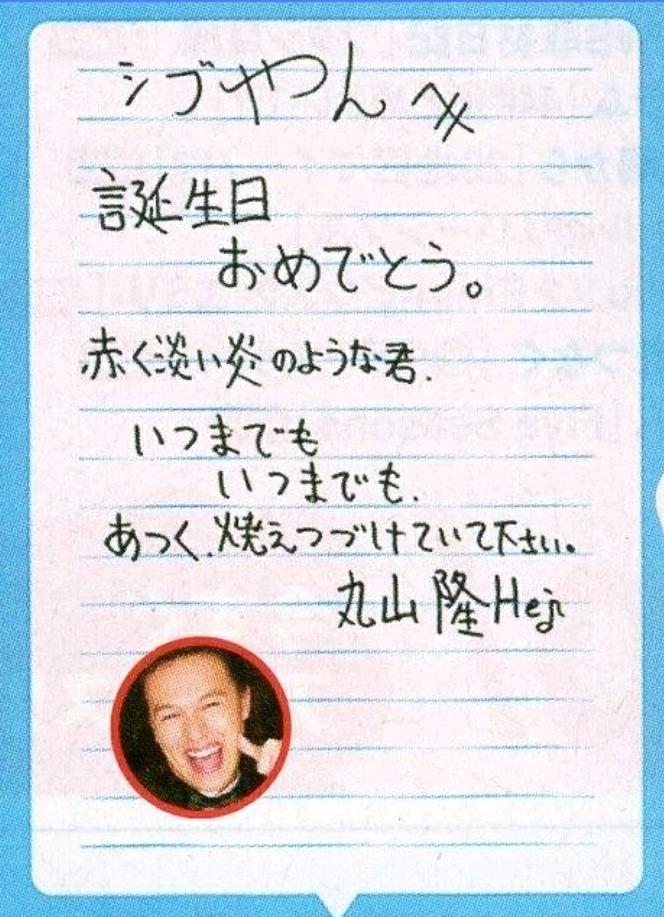 シブやつんへ
誕生日
おめでとう。
赤く淡い炎のような君.
いつまでも
いつまでも.
あつく.焼えつづけていて下さい。
丸山 隆Heji